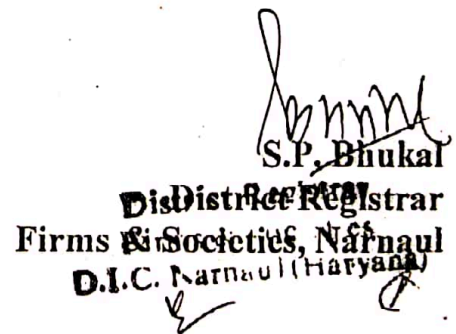 S.P. Bhukal
District Registrar
Firms & Societies, Narnaul
D.I.C. Narnaul (Haryana)